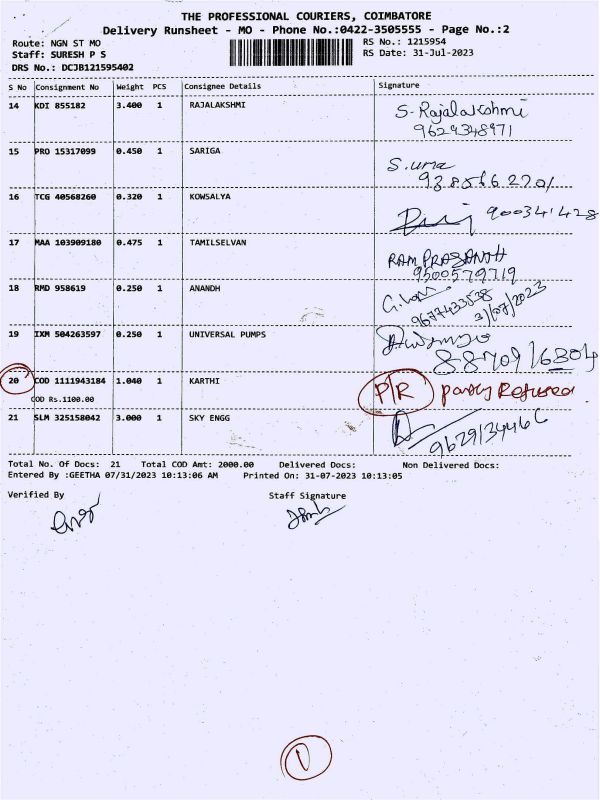 THE PROFESSIONAL COURIERS, COIMBATORE
Delivery Runsheet - MO - Phone No.:0422-3505555 - Page No.:2
Route: NGN ST MO RS No.: 1215954
Staff: SURESH P S RS Date: 31-Jul-2023
DRS No.: DCJB121595402
S No Consignment No Weight PCS Consignee Details Signature
14 KDI 855182 3.400 1 RAJALAKSHMI S. Rajalakshmi
9629348971
15 PRO 15317099 0.450 1 SARIGA S. uma
16 TCG 40568260 0.320 1 KOWSALYA 900341428
17 MAA 103909180 0.475 1 TAMILSELVAN RAM PRASANTH
9500579719
18 RMD 958619 0.250 1 ANANDH
9677433538
31/07/2023
19 IXM 504263597 0.250 1 UNIVERSAL PUMPS
8870916804
20 COD 1111943184 1.040 1 KARTHI P/R party Refused
COD Rs.1100.00
21 SLM 325158042 3.000 1 SKY ENGG
Total No. Of Docs: 21 Total COD Amt: 2000.00 Delivered Docs: Non Delivered Docs:
Entered By :GEETHA 07/31/2023 10:13:06 AM Printed On: 31-07-2023 10:13:05
Verified By Staff Signature
1